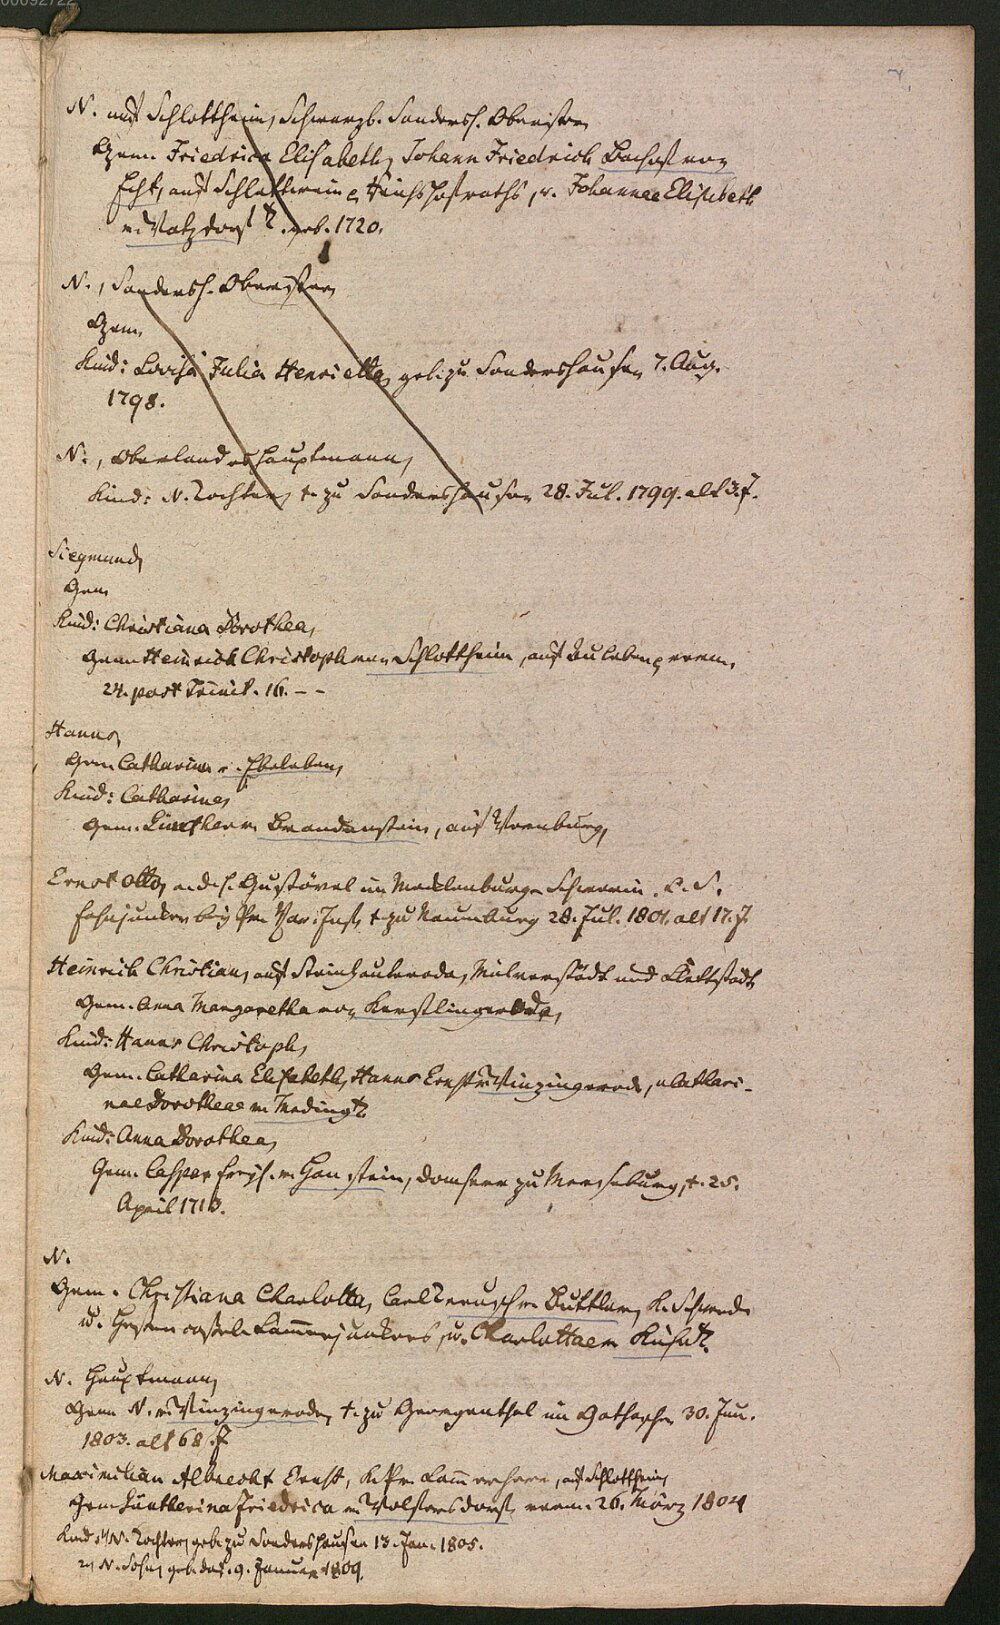 N. auf Schlottheim, Schwarzb. Sondersh. Obrister
Gem. Friedrica Elisabeth, Johann Friedrich Bachof von
Echt, auf Schlettwein, Reichshofraths, u. Johannae Elisabeth
v. Vatzdorf T. geb. 1720.
N., Sondersh. Obrister
Gem.
Kind: Lovisa Julia Henrietta, geb. zu Sondershausen 7. Aug.
1798.
N., Oberlandeshauptmann,
Kind: N. Tochter, +. zu Sondershausen 28. Jul. 1799. alt 3. J.
Siegmund,
Gem
Kind: Christiana Dorothea,
Gem. Heinrich Christoph von Schlottheim, auf Auleben, verm.
24. post Trinit. 16. - -
Hanns,
Gem. Catharina v. Ebeleben,
Kind: Catharina,
Gem. Günther v. Brandenstein, auf
Ernst Otto, a. d. H. Gustävel im Mecklenburg. Schwerin. C. S.
Fahnjunker bey Pr. Inf. +. zu Naumburg 28. Jul. 1801. alt 17. J.
Heinrich Christian, auf Steinheuterode, Mülverstädt und Klettstädt
Gem. Anna Margaretha von Kerstlingerode,
Kind: Hanns Christoph,
Gem. Catharina Elisabeth, Hanns Ernst v. Winzingerode, u. Cathari-
nae Dorotheae v. Meding T.
Kind: Anna Dorothea,
Gem. Casper v. Hanstein, Domherr zu Merseburg, +. 25.
April 1713.
N.
Gem. Christiana Charlotta, Carl v. Buttlar, K. Schwed.
u. Hessen cassel. Kammerjunkers, u. Charlottae v. T.
N. Hauptmann,
Gem N. v. Winzingerode, +. zu Georgenthal im Gothaschen 30. Jun.
1803. alt 68. J
Maximilian Albrecht Ernst, K. Pr. Kammerherr, auf Schlottheim,
Gem. Güntherina Friedrica v. Wolfersdorf, verm. 26. März 1804
Kind: 1) N. Tochter, geb. zu Sondershausen 13. Jan. 1805.
2) N. Sohn, geb. das. 9. Januar 1809.